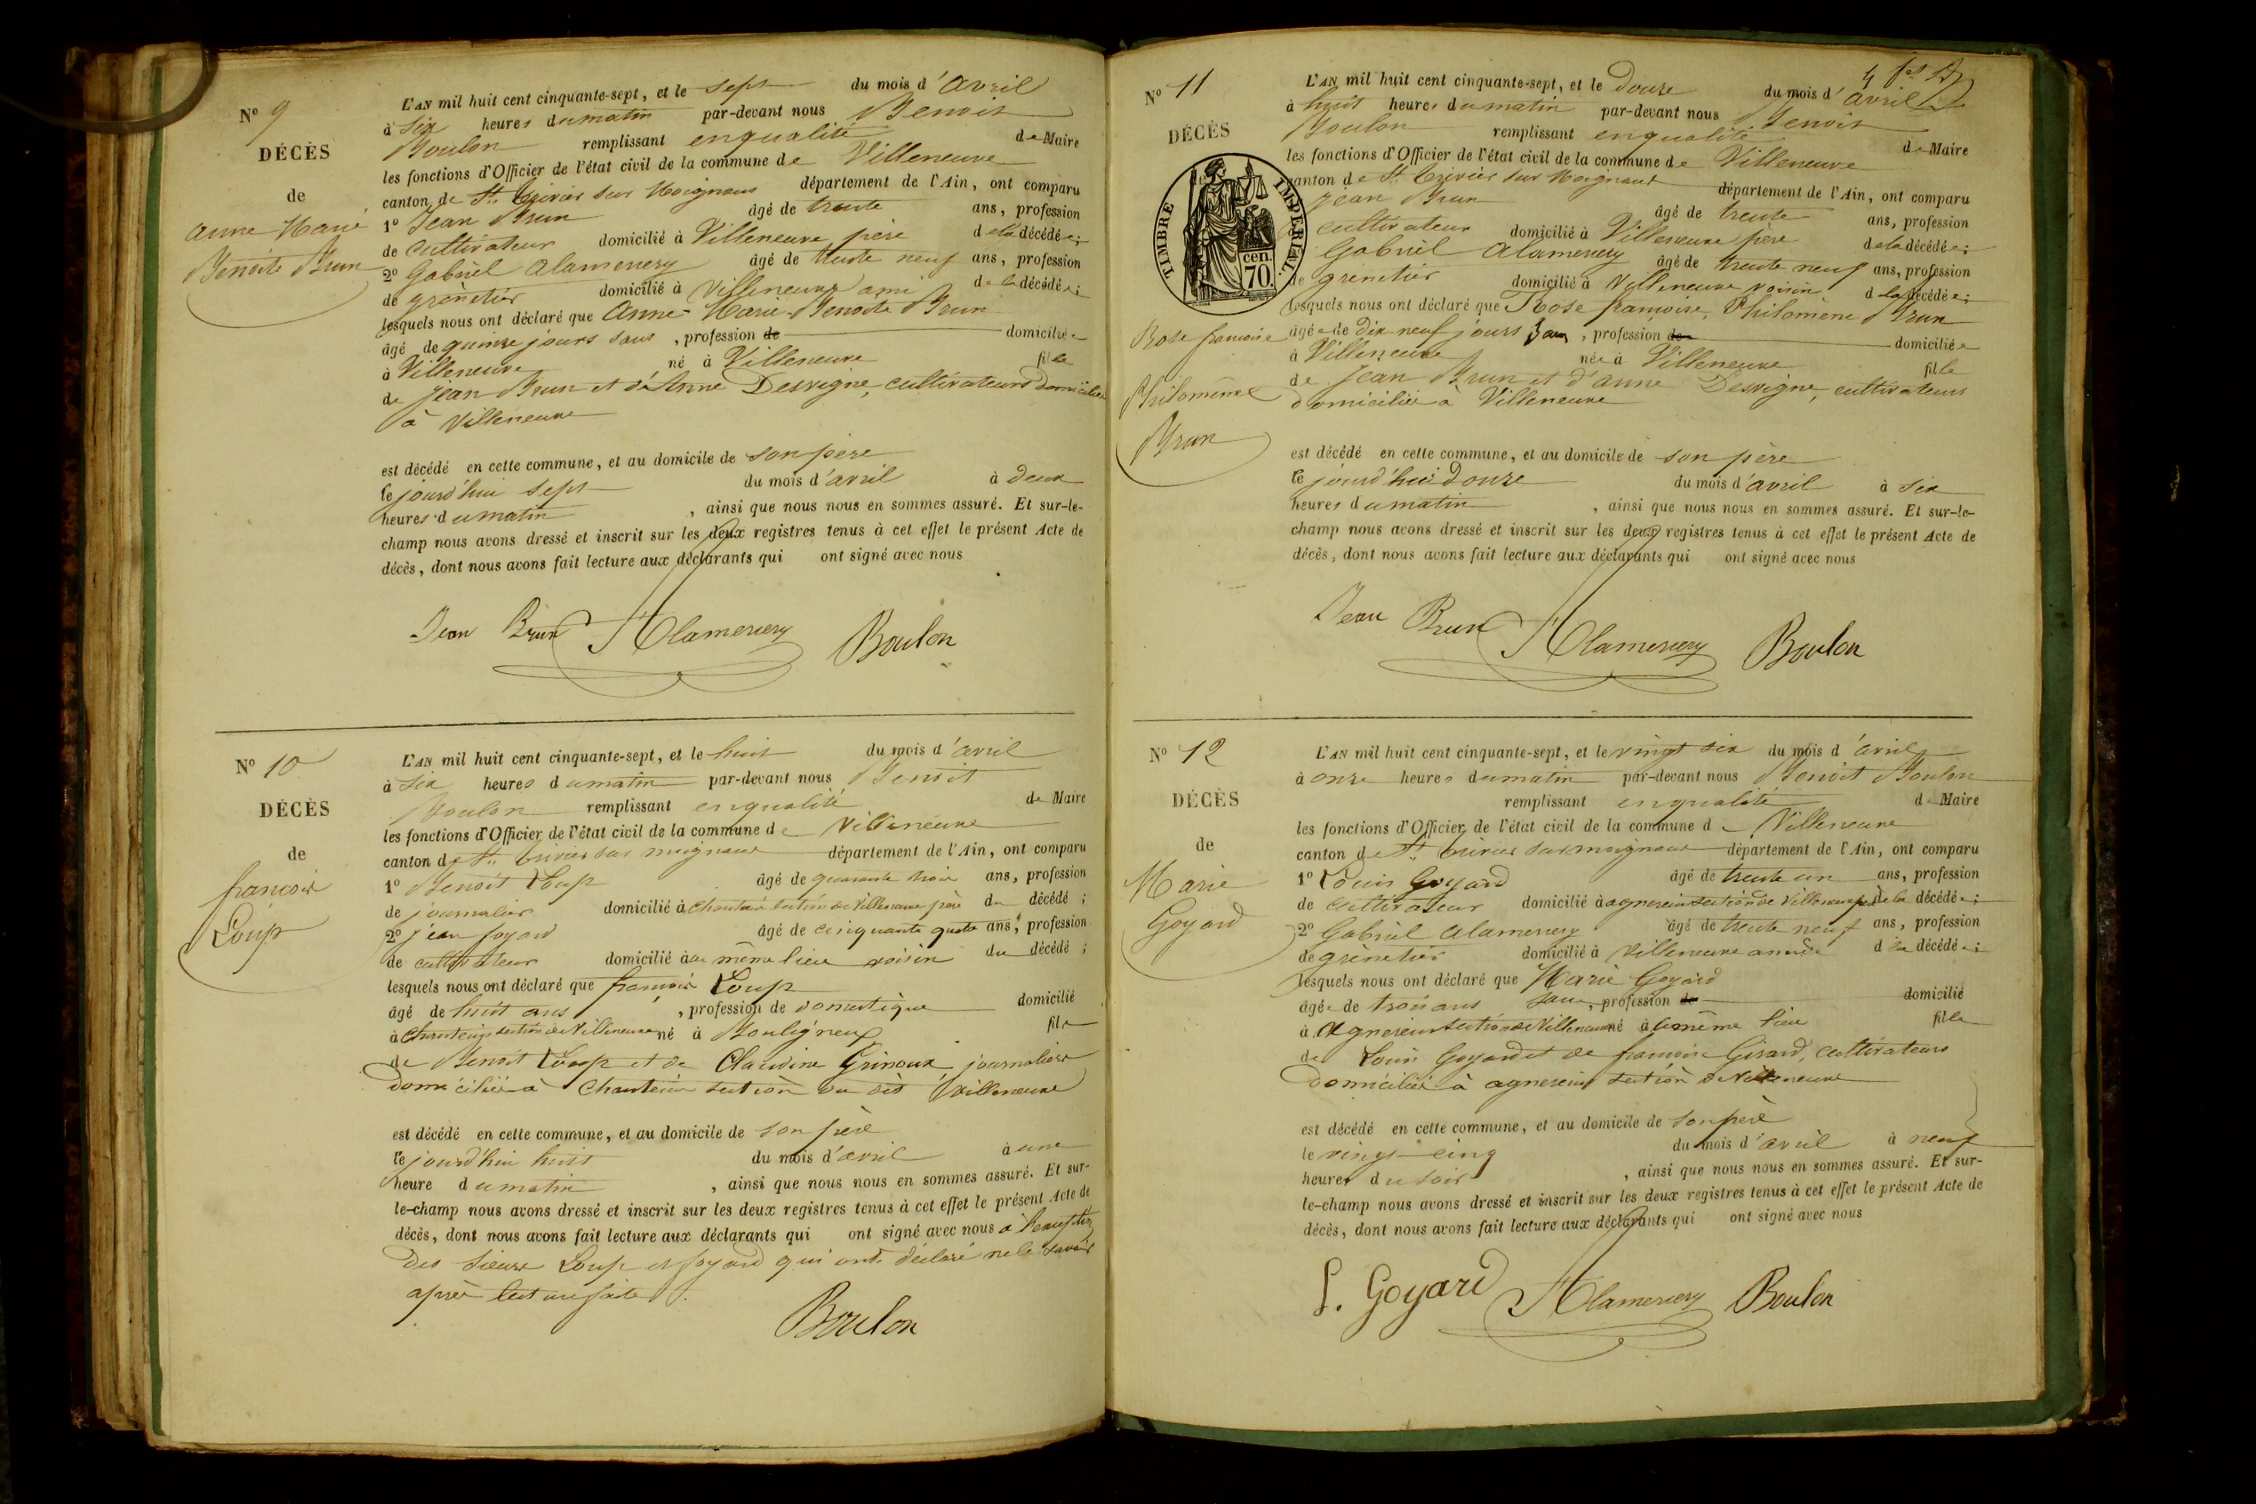 Nº 9
DÉCÈS
de
Anne Marie
Benoite Brun
L'AN mil huit cent cinquante-sept, et le sept du mois d'avril
à six heures du matin par-devant nous Benoit
Boulon remplissant en qualité de Maire
les fonctions d'Officier de l'état civil de la commune de Villeneuve
canton de St. Trivier sur Moignans département de l'Ain, ont comparu
1º Jean Brun âgé de trente ans, profession
de cultivateur domicilié à Villeneuve père de la décédée;
2º Gabriel Alamercery âgé de trente neuf ans, profession
de grènetier domicilié à Villeneuve ami de la décédée;
lesquels nous ont déclaré que Anne-Marie-Benoite Brun
âgé de quinze jours sans, profession de domiciliée
à Villeneuve né à Villeneuve fille
de Jean Brun et d'Anne Desvigne, cultivateurs domiciliés
à Villeneuve
est décédé en cette commune, et au domicile de son père
le jourd'hui sept du mois d'avril à deux
heures du matin, ainsi que nous nous en sommes assuré. Et sur-le-
champ nous avons dressé et inscrit sur les deux registres tenus à cet effet le présent Acte de
décès, dont nous avons fait lecture aux déclarants qui ont signé avec nous
Jean Brun Alamercery Boulon
Nº 10
DÉCÈS
de
françois
Loup
L'AN mil huit cent cinquante-sept, et le huit du mois d'avril
à six heures du matin par-devant nous Benoit
Boulon remplissant en qualité de Maire
les fonctions d'Officier de l'état civil de la commune de Villeneuve
canton de St. trivier sur moignans département de l'Ain, ont comparu
1º Benoit Loup âgé de quarante trois ans, profession
de journalier domicilié à Chanteins section de Villeneuve père du décédé;
2º jean foyard âgé de cinquante quatre ans, profession
de cultivateur domicilié à au même lieu voisin du décédé;
lesquels nous ont déclaré que françois Loup
âgé de huit ans, profession de domestique domicilié
à Chanteins section de Villeneuve né à Bouligneux fils
de Benoit Loup et de Claudine Grinoux journaliers
domiciliés à Chanteins section du dit Villeneuve
est décédé en cette commune, et au domicile de son père
le jourd'hui huit du mois d'avril à une
heure du matin, ainsi que nous nous en sommes assuré. Et sur-
le-champ nous avons dressé et inscrit sur les deux registres tenus à cet effet le présent Acte de
décès, dont nous avons fait lecture aux déclarants qui ont signé avec nous à l'exception
des sieurs Loup et foyard qui ont déclaré ne le savoir
après lecture faite.
Boulon
4
Nº 11
DÉCÈS
de
TIMBRE IMPÉRIAL.
cen.
70.
Rose françoise
Philomène
Brun
L'AN mil huit cent cinquante-sept, et le douze du mois d'avril
à huit heures du matin par-devant nous Benoit
Boulon remplissant en qualité de Maire
les fonctions d'Officier de l'état civil de la commune de Villeneuve
canton de St. Trivier sur Moignans département de l'Ain, ont comparu
jean Brun âgé de trente ans, profession
cultivateur domicilié à Villeneuve père de la décédée;
Gabriel Alamercery âgé de trente neuf ans, profession
de grenetier domicilié à Villeneuve voisin de la décédée;
lesquels nous ont déclaré que Rose françoise, Philomène Brun
âgée de dix neuf jours sans, profession de domiciliée
à Villeneuve née à Villeneuve fille
de Jean Brun et d'Anne Desvigne, cultivateurs
domiciliés à Villeneuve
est décédé en cette commune, et au domicile de son père
le jourd'hui douze du mois d'avril à six
heures du matin, ainsi que nous nous en sommes assuré. Et sur-le-
champ nous avons dressé et inscrit sur les deux registres tenus à cet effet le présent Acte de
décès, dont nous avons fait lecture aux déclarants qui ont signé avec nous
Jean Brun Alamercery Boulon
Nº 12
DÉCÈS
de
Marie
Goyard
L'AN mil huit cent cinquante-sept, et le vingt six du mois d'avril
à onze heures du matin par-devant nous Benoit Boulon
remplissant en qualité de Maire
les fonctions d'Officier de l'état civil de la commune de Villeneuve
canton de St. trivier sur moignans département de l'Ain, ont comparu
1º Louis Goyard âgé de trente un ans, profession
de cultivateur domicilié à agnereins section de Villeneuve père de la décédée;
2º Gabriel Alamercery âgé de trente neuf ans, profession
de grènetier domicilié à Villeneuve ami de la décédée;
lesquels nous ont déclaré que Marie Goyard
âgée de trois ans sans, profession de domicilié
à Agnereins section de Villeneuve né à le même lieu fille
de Louis Goyard et de françoise Girard, cultivateurs
domiciliés à agnereins section de Villeneuve
est décédé en cette commune, et au domicile de son père
le vingt-cinq du mois d'avril à neuf
heures du soir, ainsi que nous nous en sommes assuré. Et sur-
le-champ nous avons dressé et inscrit sur les deux registres tenus à cet effet le présent Acte de
décès, dont nous avons fait lecture aux déclarants qui ont signé avec nous
L. Goyard Alamercery Boulon